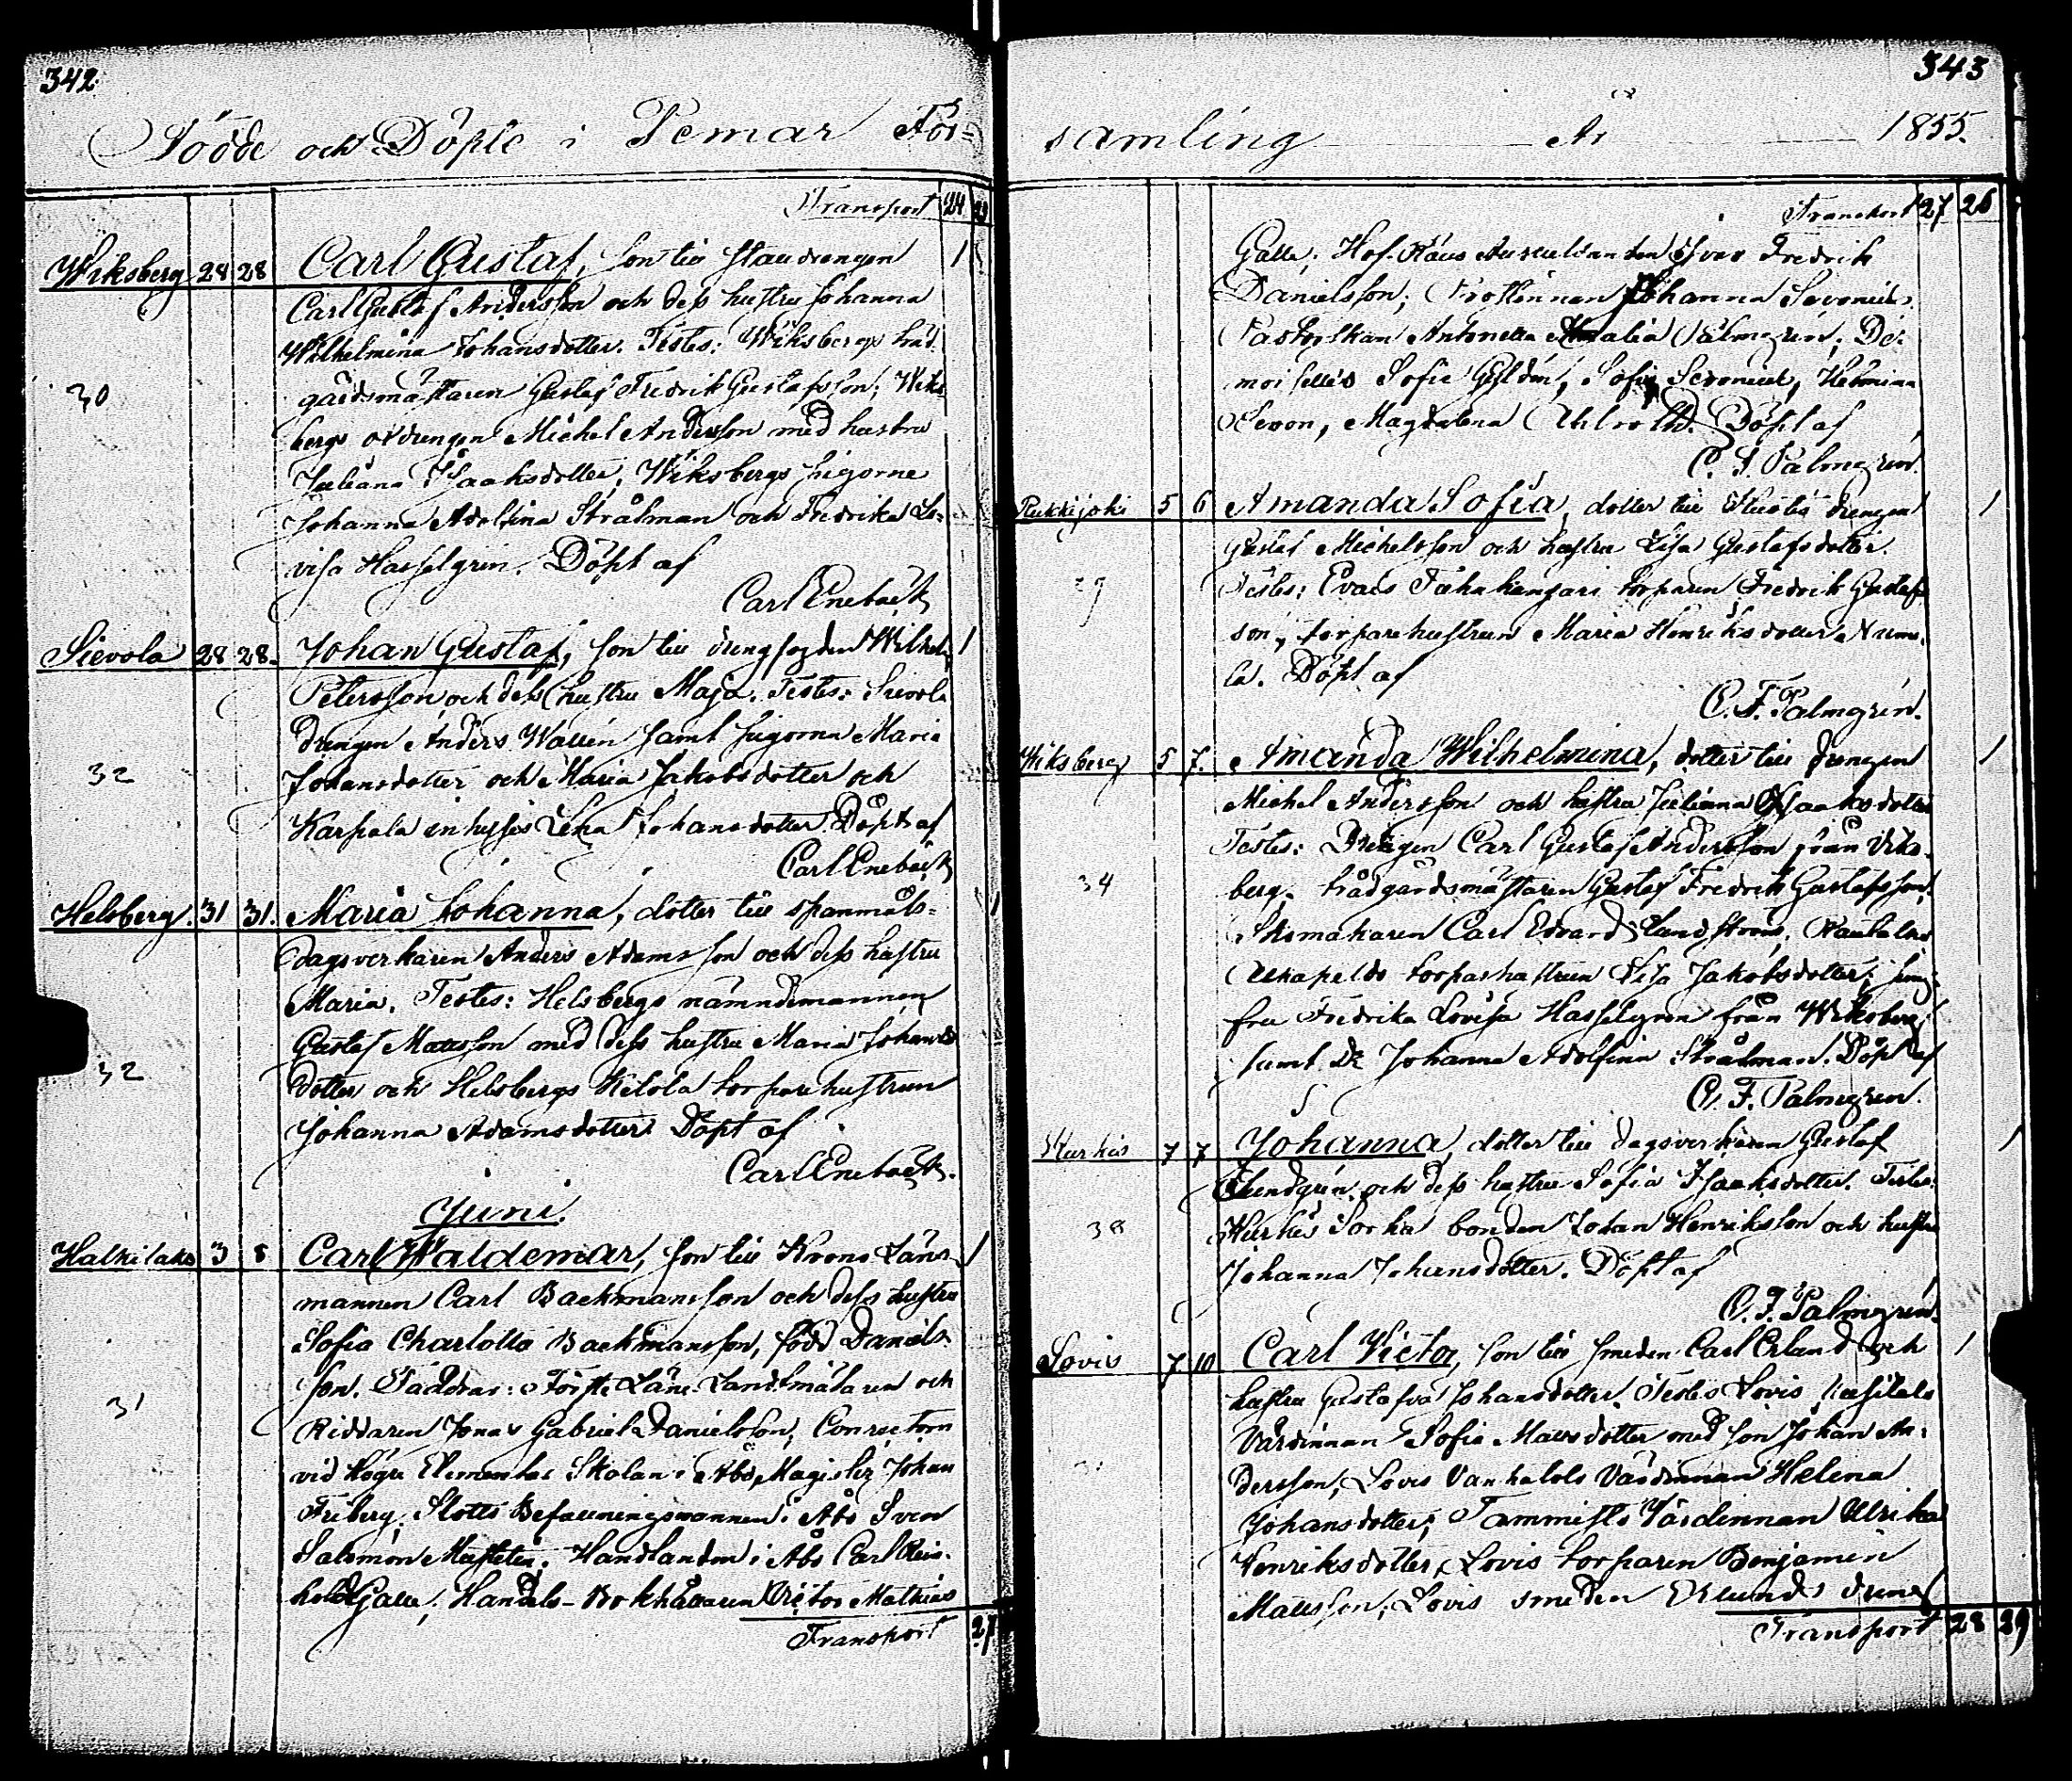 342
Födde och Döpte i Pemar För-
Transport 24
Wiksberg 28 28 Carl Gustaf, son till stalldrengen 1
Carl Gustaf Andersson och dess hustru Johanna
Wilhelmina Johansdotter. Testes: Wiksbergs träd-
30
gårdsmästaren Gustaf Fredrik Gustafsson; Wiks-
bergs oxdrengen Michel Andersson med hustru
Juliana Isaaksdotter, Wiksbergs pigorne
Johanna Adolfina Strålman och Fredrika Lo-
visa Hasselgrén. Döpt af
Carl Enebäck
Sievola 28 28. Johan Gustaf, son till drengfogden Wilhelm 1
Petersson och dess hustru Maja. Testes: Sievola
drengen Anders Wallén samt pigorna Maria
32
Johansdotter och Maria Jakobsdotter och
Karpala inhyses Lena Johansdotter. Döpt af
Carl Enebäck
Helsberg. 31 31. Maria Johanna, dotter till spanmåls- 1
dagsverkaren Anders Adamsson och dess hustru
Maria. Testes: Helsbergs nämndemannen
Gustaf Mattsson med dess hustru Maria Johans-
32
dotter och Helsbergs Kilola torparehustrun
Johanna Adamsdotter. Döpt af
Carl Enebäck.
Juni.
Halkilaks 3 8 Carl Waldemar, son till Krono Läns- 1
mannen Carl Backmansson och dess hustru
Sofia Charlotta Backmansson, född Daniels-
son. Faddrar: Förste Läne Landtmätaren och
31
Riddaren Jonas Gabriel Danielsson; Conrectorn
vid Högre Elementar Skolan i Åbo, Magister Johan
Friberg; Slotts Befallningsmannen i Åbo Sven
Salomon; Handlanden i Åbo Carl Rein-
hold Galle; Handels-Bokhållaren Victor Mathias
Transport 27
343
samling År 1855.
Transport 27 26
Galle; Hof-Rätts Auscultanten Ivar Fredrik
Danielsson; Johanna
Pastorskan Antonetta Amalia Palmgren; De-
moiselles Sofie Gyldén, Sofie, Helmina
Sevon, Magdalena. Döpt af
C. F. Palmgren.
Pukkijoki 5 6 Amanda Sofia, dotter till drengen 1
Gustaf Michelsson och hustru Lisa Gustafsdotter.
29
Testes: torparen Fredrik Gustafs-
son, torparehustrun Maria Henriksdotter
la. Döpt af
C. F. Palmgren.
Wiksberg 5 7. Amanda Wilhelmina, dotter till drengen 1
Michel Andersson och hustru Juliana Isaaksdotter
Testes: Drengen Carl Gustaf Andersson från Wiks-
34
berg, trädgårdsmästaren Gustaf Fredrik Gustafsson,
Skomakaren Carl Edvard Sandström,
torparhustrun Lisa Jakobsdotter; jung-
fru Fredrika Lovisa Hasselgren från Wiksberg
samt Do Johanna Adolfina Strålman. Döpt af
C. F. Palmgren.
7 7 Johanna, dotter till dagsverkaren Gustaf 1
och dess hustru Sofia Isaaksdotter. Testes:
38
Sorka bonden Johan Henriksson och hustru
Johanna Johansdotter. Döpt af
C. F. Palmgren.
Lovis 7 10 Carl Victor, son till smeden Carl Erlund och 1
hustru Gustafva Johansdotter. Testes Lovis
Värdinnan Sofia Mattsdotter med son Johan An-
dersson, Lovis Vanhatalo Värdinnan Helena
Johansdotter; Tammisto Värdinnan Ulrika
Henriksdotter, Lovis torparen Benjamin
Mattsson, Lovis smeden Erlunds dreng
Transport 28 29